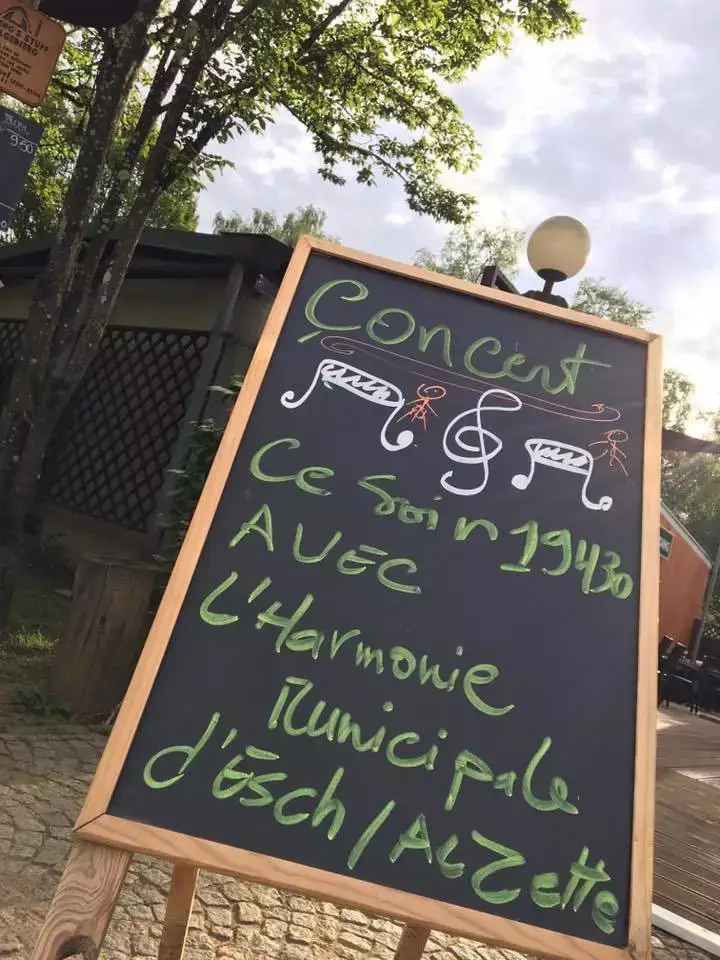 STUFF
9.50
Concert
Ce Soir 19H30
AVEC
L'Harmonie
Municipale
d'Esch/Alzette